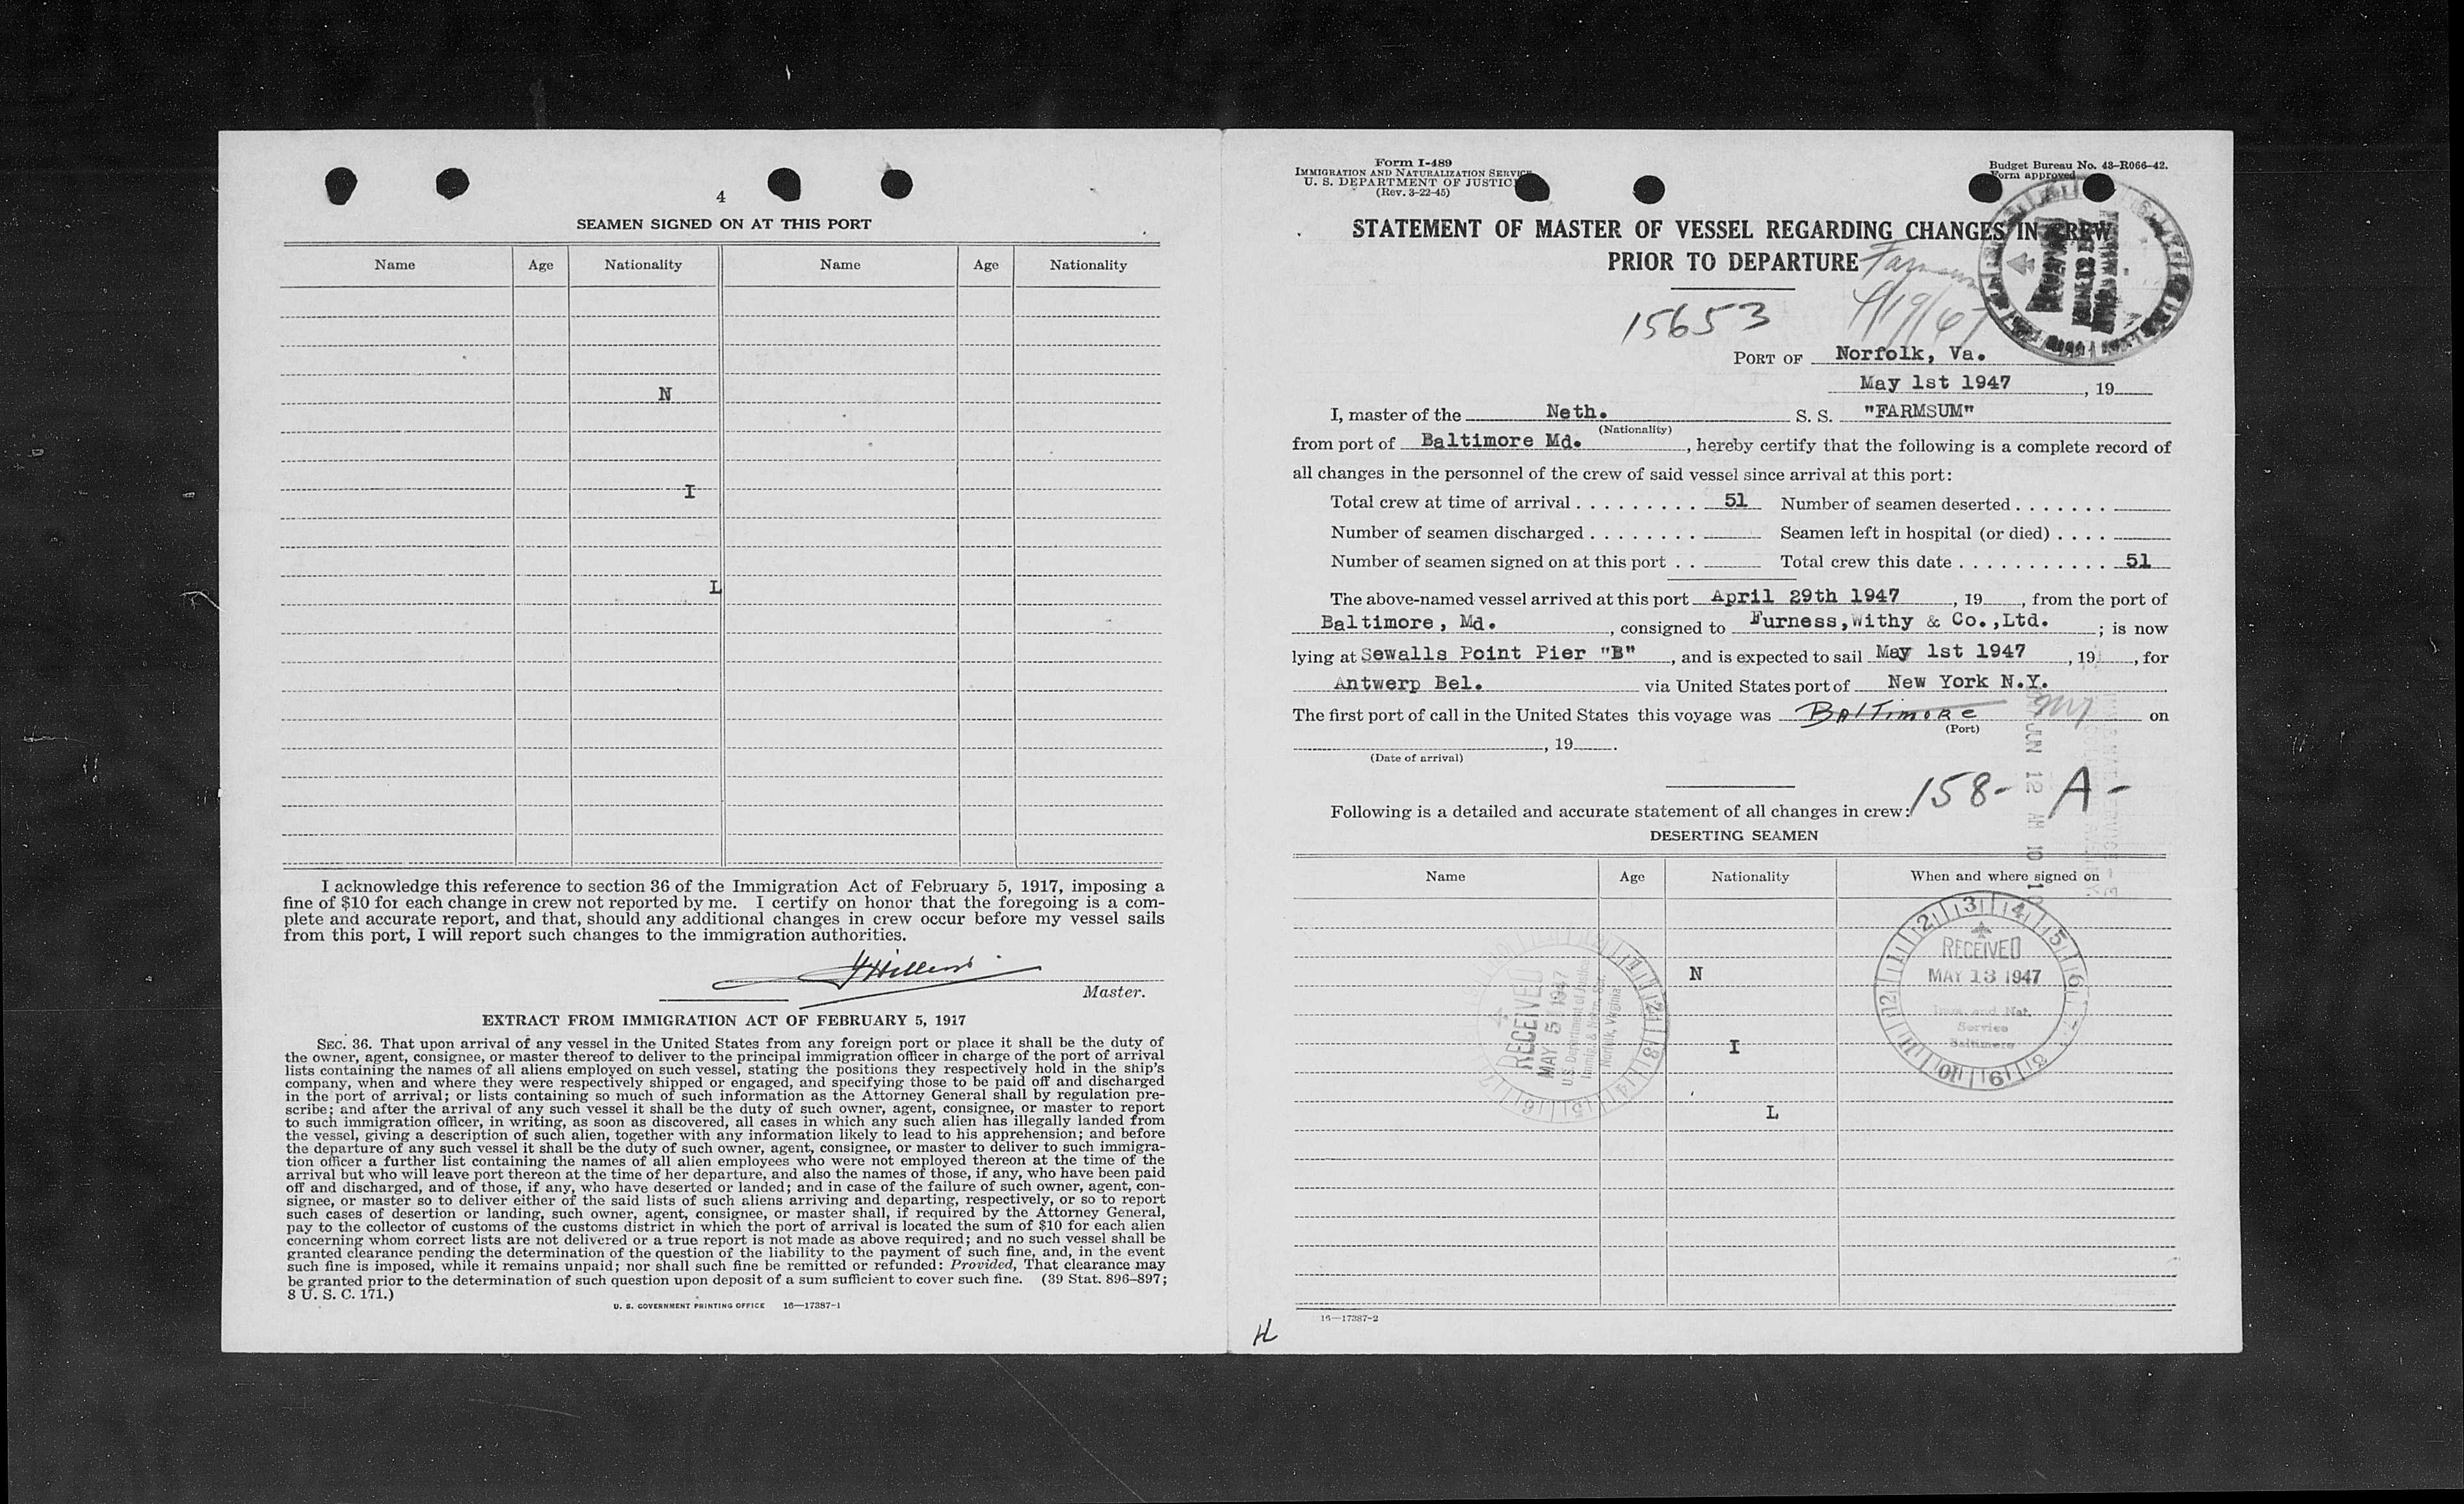 4
SEAMEN SIGNED ON AT THIS PORT
Name Age Nationality Name Age Nationality
N
I
L
I acknowledge this reference to section 36 of the Immigration Act of February 5, 1917, imposing a
fine of $10 for each change in crew not reported by me. I certify on honor that the foregoing is a com-
plete and accurate report, and that, should any additional changes in crew occur before my vessel sails
from this port, I will report such changes to the immigration authorities.
Master.
EXTRACT FROM IMMIGRATION ACT OF FEBRUARY 5, 1917
SEC. 36. That upon arrival of any vessel in the United States from any foreign port or place it shall be the duty of
the owner, agent, consignee, or master thereof to deliver to the principal immigration officer in charge of the port of arrival
lists containing the names of all aliens employed on such vessel, stating the positions they respectively hold in the ship's
company, when and where they were respectively shipped or engaged, and specifying those to be paid off and discharged
in the port of arrival; or lists containing so much of such information as the Attorney General shall by regulation pre-
scribe; and after the arrival of any such vessel it shall be the duty of such owner, agent, consignee, or master to report
to such immigration officer, in writing, as soon as discovered, all cases in which any such alien has illegally landed from
the vessel, giving a description of such alien, together with any information likely to lead to his apprehension; and before
the departure of any such vessel it shall be the duty of such owner, agent, consignee, or master to deliver to such immigra-
tion officer a further list containing the names of all alien employees who were not employed thereon at the time of the
arrival but who will leave port thereon at the time of her departure, and also the names of those, if any, who have been paid
off and discharged, and of those, if any, who have deserted or landed; and in case of the failure of such owner, agent, con-
signee, or master so to deliver either of the said lists of such aliens arriving and departing, respectively, or so to report
such cases of desertion or landing, such owner, agent, consignee, or master shall, if required by the Attorney General,
pay to the collector of customs of the customs district in which the port of arrival is located the sum of $10 for each alien
concerning whom correct lists are not delivered or a true report is not made as above required; and no such vessel shall be
granted clearance pending the determination of the question of the liability to the payment of such fine, and, in the event
such fine is imposed, while it remains unpaid; nor shall such fine be remitted or refunded: Provided, That clearance may
be granted prior to the determination of such question upon deposit of a sum sufficient to cover such fine. (39 Stat. 896–897;
8 U. S. C. 171.)
U. S. GOVERNMENT PRINTING OFFICE 16—17387-1
Form I-489
IMMIGRATION AND NATURALIZATION SERVICE
U. S. DEPARTMENT OF JUSTICE
(Rev. 3-22-45)
Budget Bureau No. 43–R066–42.
Form approved
STATEMENT OF MASTER OF VESSEL REGARDING CHANGES IN CREW
PRIOR TO DEPARTURE
Farmsum
15653
PORT OF Norfolk, Va.
May 1st 1947, 19
I, master of the Neth. S. S. "FARMSUM"
(Nationality)
from port of Baltimore Md., hereby certify that the following is a complete record of
all changes in the personnel of the crew of said vessel since arrival at this port:
Total crew at time of arrival . . . . . . . . . 51 Number of seamen deserted . . . . . . .
Number of seamen discharged . . . . . . . . Seamen left in hospital (or died) . . . .
Number of seamen signed on at this port . . Total crew this date . . . . . . . . . . . . 51
The above-named vessel arrived at this port April 29th 1947, 19, from the port of
Baltimore, Md., consigned to Furness,Withy & Co.,Ltd.; is now
lying at Sewalls Point Pier "B", and is expected to sail May 1st 1947, 19, for
Antwerp Bel. via United States port of New York N.Y.
The first port of call in the United States this voyage was Baltimore on
(Port)
, 19.
(Date of arrival)
JUN 12 AM 10
158- A-
Following is a detailed and accurate statement of all changes in crew:
DESERTING SEAMEN
Name Age Nationality When and where signed on
N
I
L
RECEIVED
MAY 5 1947
U.S. Department of Justice
Immig. & Natzn. Ser.
Norfolk, Virginia
1 2 3 4 5 6 7 8 9 10 11 12
RECEIVED
MAY 13 1947
Imm. and Nat.
Service
Baltimore
16—17387-2
H